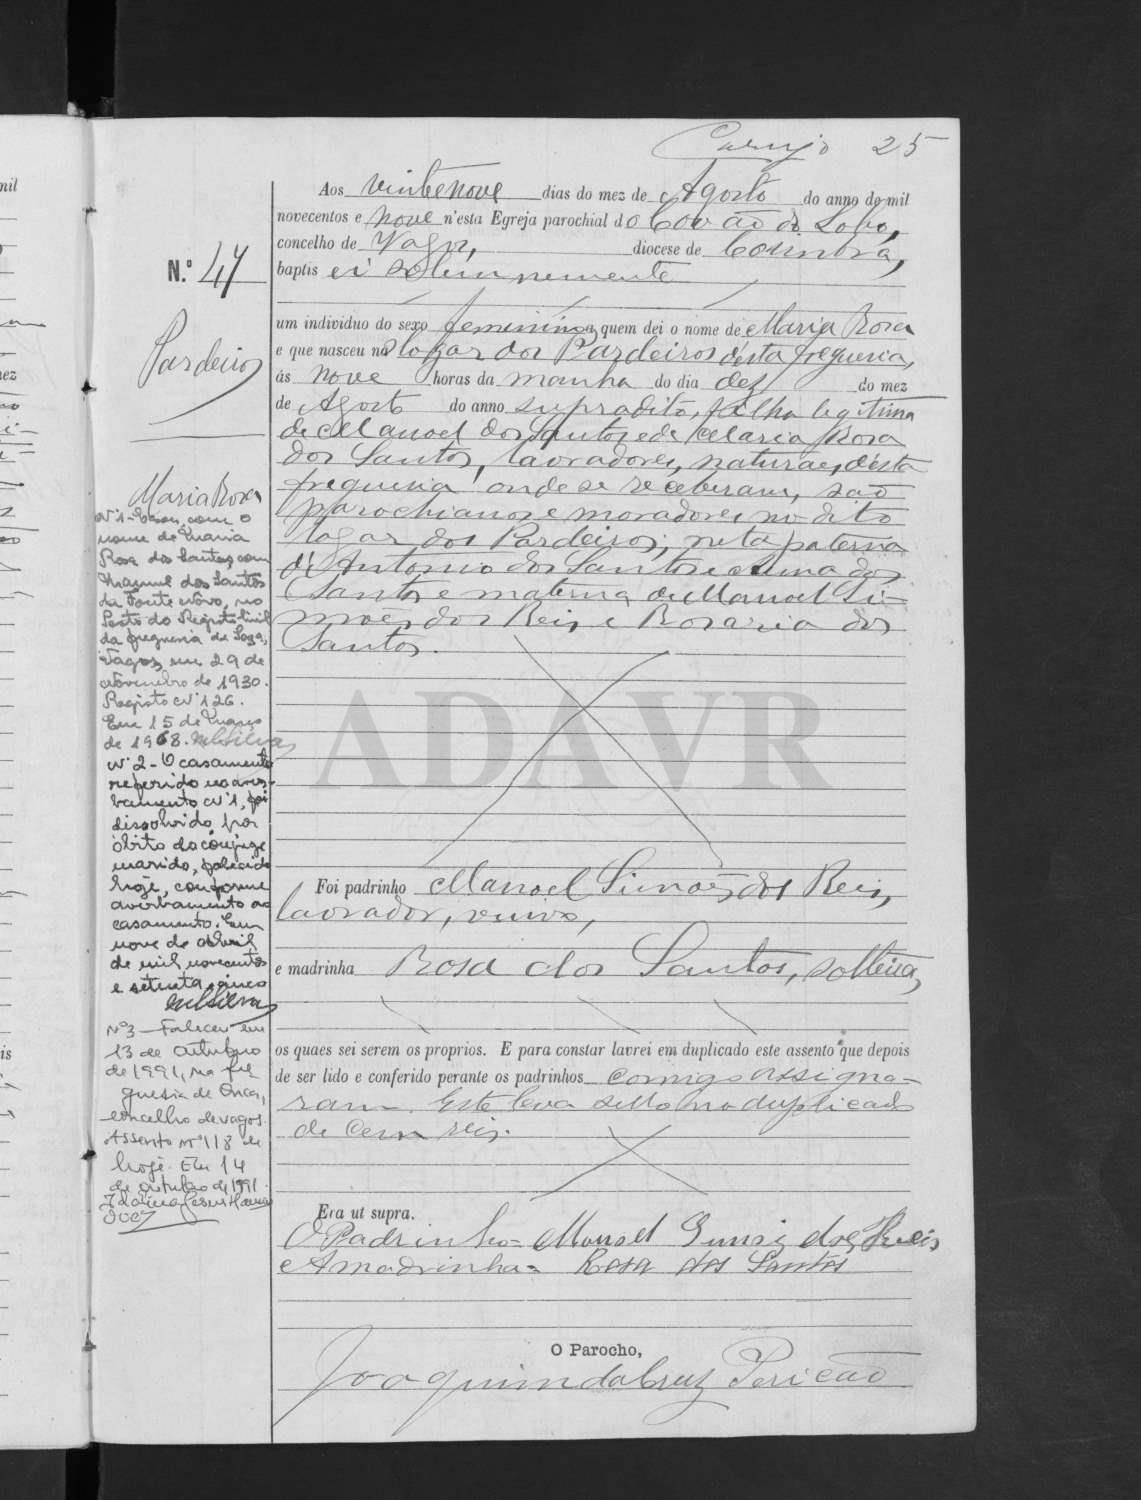 25
Aos vinte nove dias do mez de Agosto do anno de mil
novecentos e nove n'esta Egreja parochial do Covão do Lobo,
concelho de Vagos, diocese de Coimbra,
baptisei solemnemente
um individuo do sexo feminino a quem dei o nome de Maria Rosa
e que nasceu no logar dos Pardeiros d'esta freguesia,
ás nove horas da manhã do dia dez do mez
de Agosto do anno supradito, filha legitima
de Manoel dos Santos e de Maria Rosa
dos Santos, lavradores, naturaes d'esta
freguesia onde se receberam, são
parochianos e moradores no dito
logar dos Pardeiros; neta paterna
d'Antonio dos Santos e dos
Santos e materna de Manoel Si-
mões dos Reis e Rosaria dos
Santos.
Foi padrinho Manoel Simões dos Reis,
lavrador, viuvo,
e madrinha Rosa dos Santos, solteira,
os quaes sei serem os proprios. E para constar lavrei em duplicado este assento que depois
de ser lido e conferido perante os padrinhos comigo assigna-
ram. Este leva sello no duplicado
de cem reis.
Era ut supra.
O Padrinho = Manoel dos Reis
A madrinha = Rosa dos Santos
O Parocho,
Joaquim da Cruz Pericão
N.º 47
Pardeiros
Maria Rosa
Nº 1 - Casou com o
nome de Maria
Rosa dos Santos com
Manuel dos Santos
da Fonte Novo, no
Posto do Registo Civil
da freguesia de Soza,
Vagos, em 29 de
Novembro de 1930.
Registo Nº 126.
Em 15 de Março
de 1968.
Nº 2 - O casamento
referido no aver-
bamento Nº 1, foi
dissolvido por
óbito do cônjuge
marido, falecido
hoje, conforme
averbamento ao
casamento. Em
nove de Abril
de mil novecentos
e setenta e cinco
Nº 3 - Faleceu em
13 de outubro
de 1991, na fre
guesia de Ouca,
concelho de Vagos.
Assento nº 118 de
hoje. Em 14
de outubro de 1991.
ADAVR
mil
mez
is